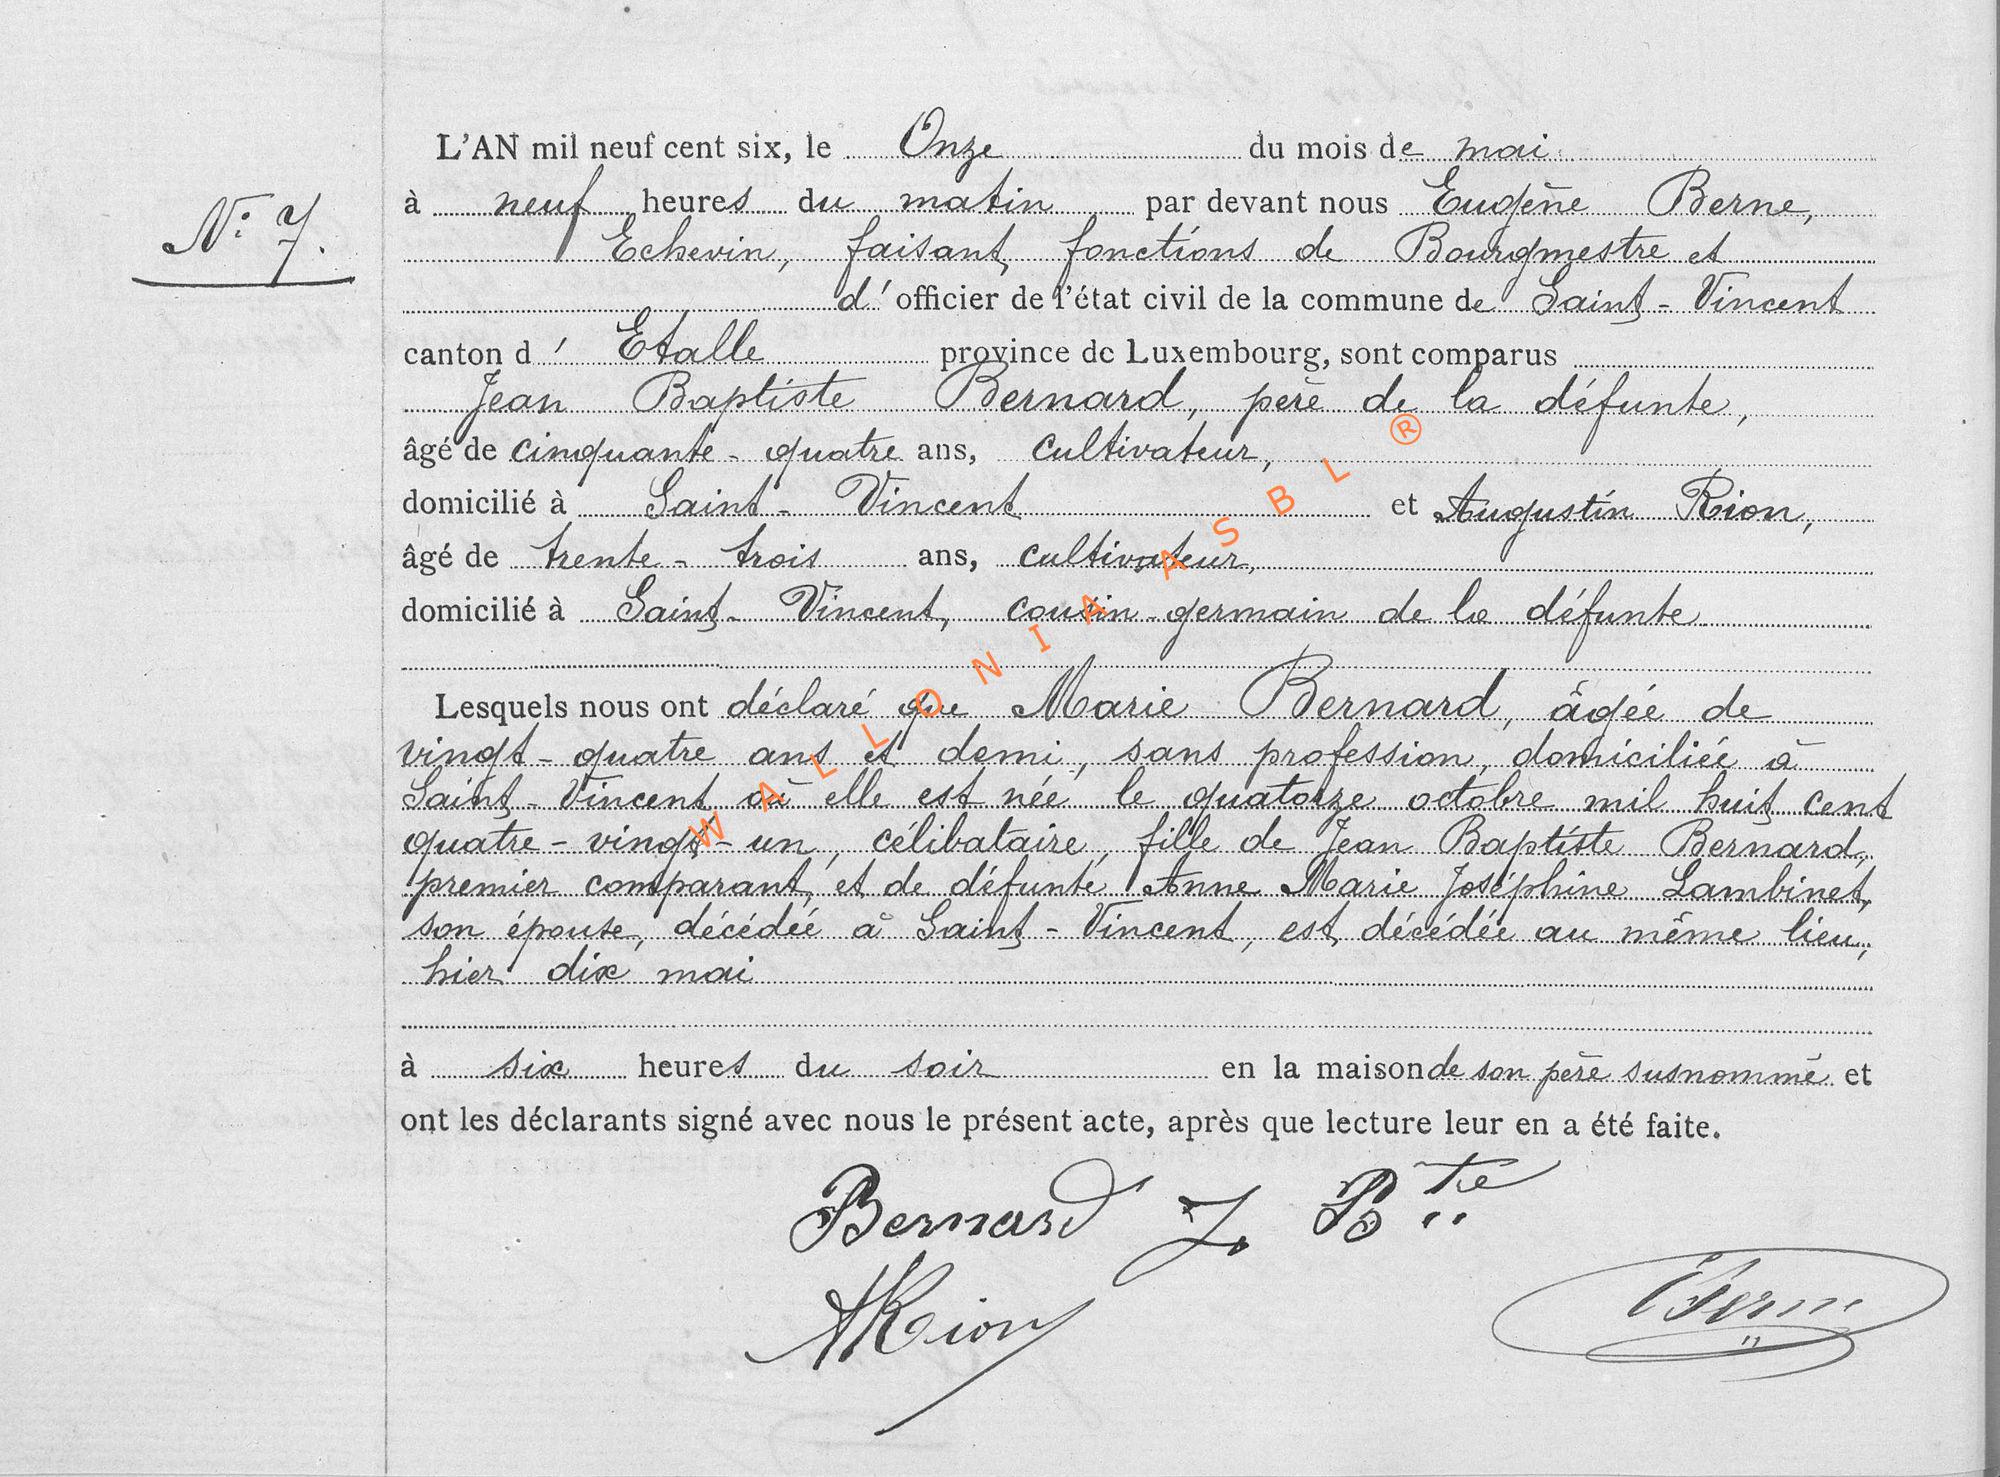 N° 7.
L'AN mil neuf cent six, le Onze du mois de mai
à neuf heures du matin par devant nous Eugène Berne,
Echevin, faisant fonctions de Bourgmestre et
d' officier de l'état civil de la commune de Saint-Vincent
canton d' Etalle province de Luxembourg, sont comparus
Jean Baptiste Bernard, père de la défunte,
âgé de cinquante-quatre ans, cultivateur,
domicilié à Saint-Vincent et Augustin Rion,
âgé de trente-trois ans, cultivateur,
domicilié à Saint-Vincent, cousin-germain de la défunte
Lesquels nous ont déclaré que Marie Bernard, âgée de
vingt-quatre ans et demi, sans profession, domiciliée à
Saint-Vincent où elle est née le quatorze octobre mil huit cent
quatre-vingt-un, célibataire, fille de Jean Baptiste Bernard,
premier comparant, et de défunte Anne Marie Joséphine Lambinet,
son épouse, décédée à Saint-Vincent, est décédée au même lieu,
hier dix mai
à six heures du soir en la maison de son père susnommé et
ont les déclarants signé avec nous le présent acte, après que lecture leur en a été faite.
Bernard J. Bte
A Rion
Berne
WALLONIA ASBL ®